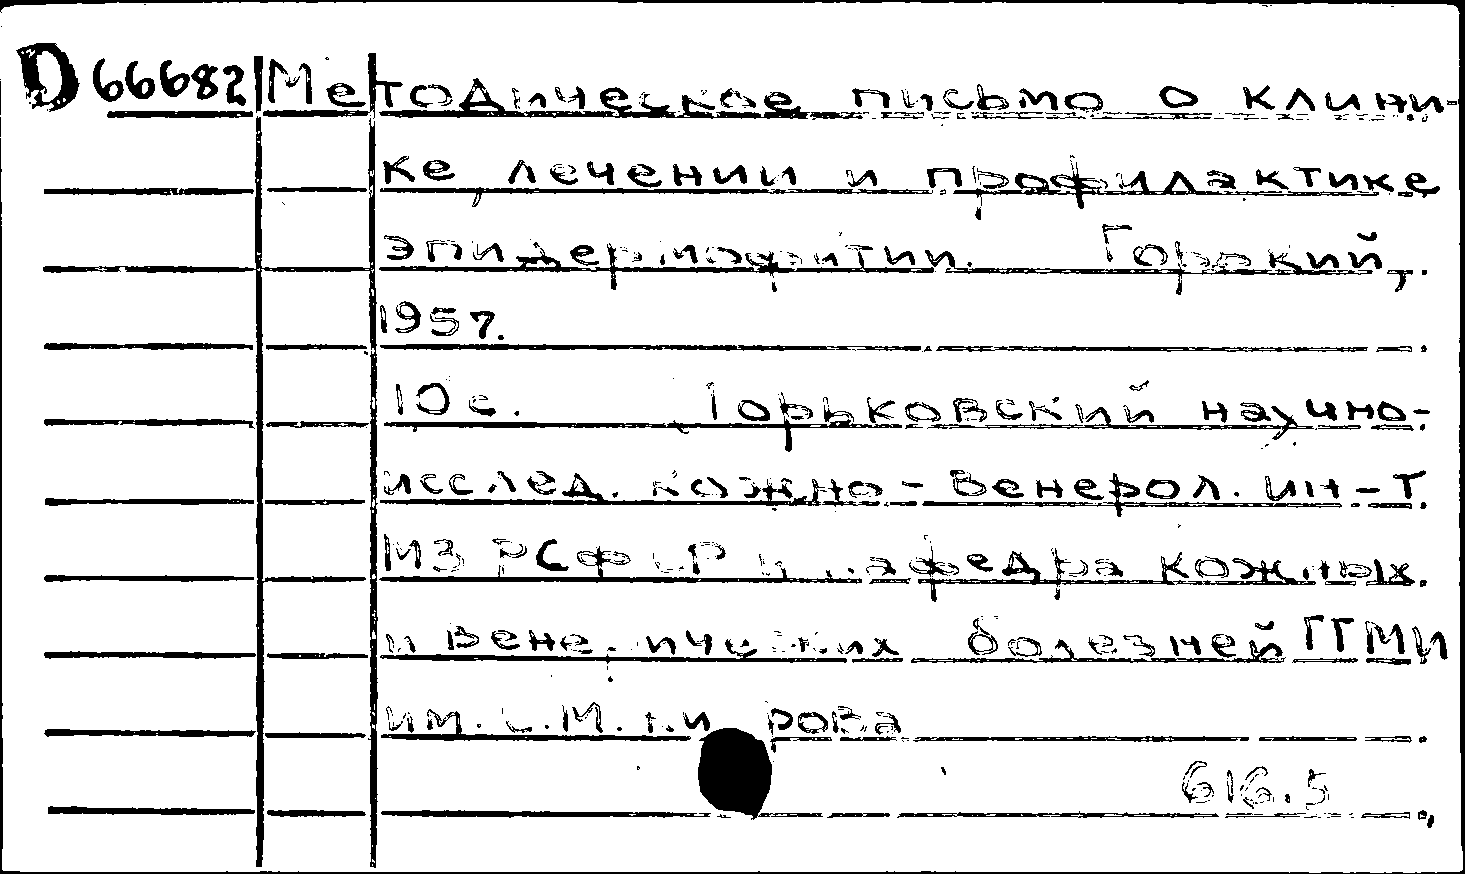 D 66682 Методическое письмо о клини-
ке, лечении и профилактике
эпидермофитии. Горький,
1957.
10 с. Горьковский научно-
исслед. кожно-венерол. ин-т
МЗ РСФСР и кафедра кожных
и венерических болезней ГГМИ
им. С.М. Кирова
616.5